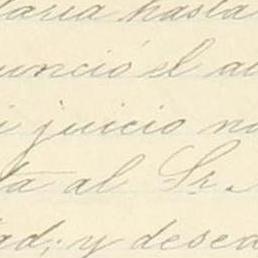 taria hasta
nunció el au
i juicio no
ta al Sr.
ad; y desea